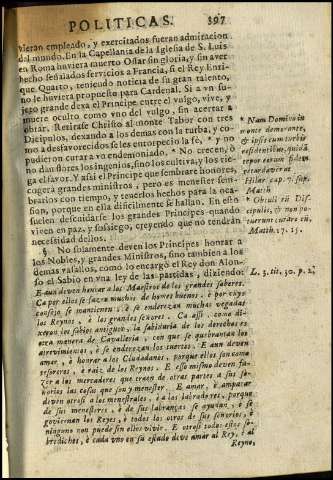 POLITICAS. 397
vieran empleado, y exercitados fueran admiracion
dal mundo. En la Capellania de la Iglesia de S. Luis
en Roma huviera muerto Ossat sin gloria, y sin aver
hecho señalados servicios a Francia, si el Rey Enri-
que Quarto, teniendo noticia de su gran talento,
no le huviera propuesto para Cardenal. Si a vn su-
jeto grande dexa el Principe entre el vulgo, vive, y
muere oculto como vno del vulgo, sin acertar a
obrar. Retirase Christo al monte Tabor con tres
Dicipulos, dexando a los demas con la turba, y co-
mo a desfavorecidos se les entorpecio la fè, * y no
pudieron curar a vn endemoniado. * No crecen, ò
no dan flores los ingenios, sino los cultiva, y los rie-
ga el favor. Y assi el Principe que sembrare honores,
cogerà grandes ministros, pero es menester sem-
brarlos con tiempo, y tenerlos hechos para la oca-
sion, porque en ella dificilmente se hallan. En esto
suelen descuidarse los grandes Principes quando
viven en paz, y sossiego, creyendo que no tendràn
necessidad dellos.
§. No solamente deven los Principes honrar a
los Nobles, y grandes Ministros, sino tambien a los
demas vasallos, como lo encargò el Rey don Alon-
so el Sabio en vna ley de las partidas, diziendo
E aun deven honrar a los Maestros de los grandes saberes.
Ca por ellos se facen muchos de homes buenos, è por cuyo
consejo se mantienen, è se enderezan muchas vegadas
los Reynos, è los grandes señores. Ca assi, como di-
xeron los sabios antiguos, la sabiduria de los derechos es
otra manera de Cavalleria, con que se quebrantan los
atrevimientos, è se enderezan los tuertos. E aun deven
amar, è honrar a los Ciudadanos, porque ellos son como
tesoreros, è raiz de los Reynos. E esso mismo deven fa-
zer a los mercaderes que traen de otras partes a sus se-
ñorios las cosas que son y menester. E amar, è amparar
deven otrosi a los menestrales, è a los labradores, porque
de sus menesteres, è de sus labranças se ayudan, è se
governan los Reyes, è todos los otros de sus señorios, è
ninguno non puede sin ellos vivir. E otrosi todos estos so-
bredichos, è cada vno en su estado deve amar al Rey, è al
Reyno,
* Nam Domino in
monte demorante,
& ipsis cum turbis
residentibus, quidā
tepor eorum fidem
retardaverat.
Hilar cap. 7. sup.
Matth
* Obtuli eū Dis-
cipulis, & non po-
tuerunt curare eū.
Matth. 17. 15.
L. 3. tit. 30. p. 2.